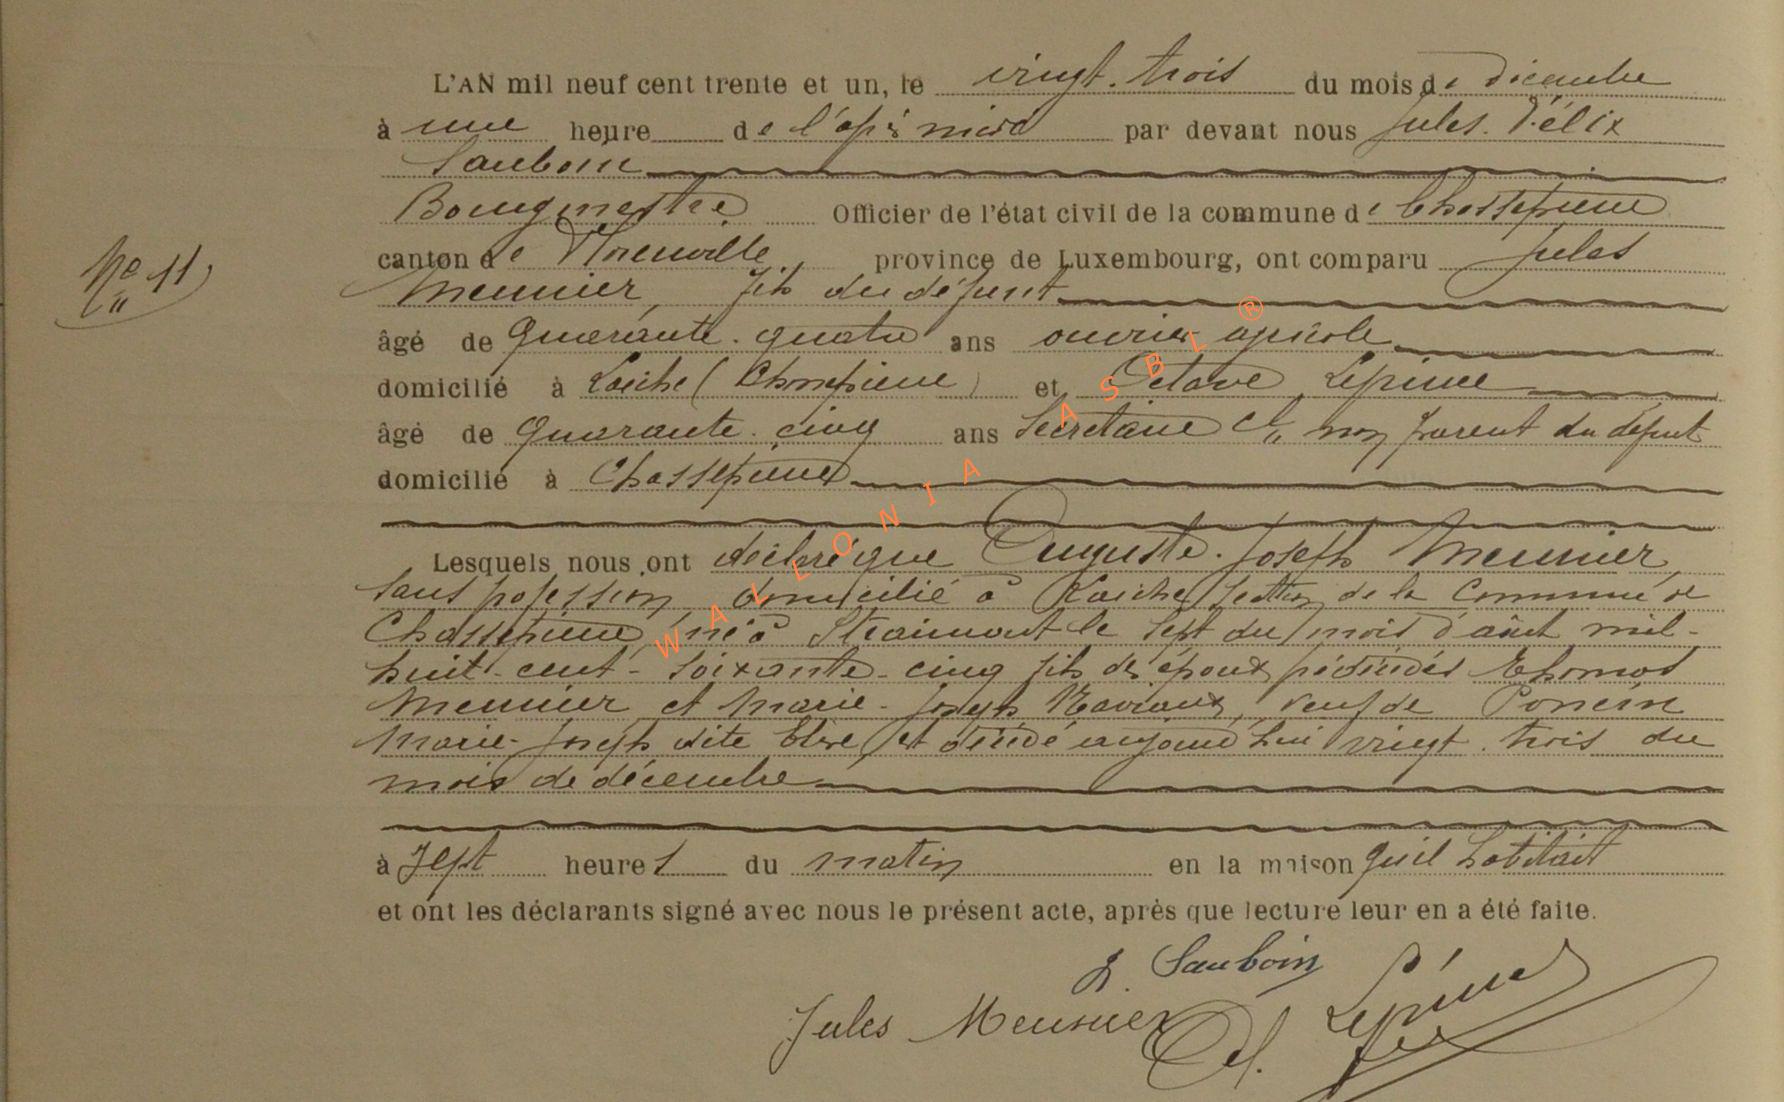 L'AN mil neuf cent trente et un, le vingt-trois du mois de décembre
à une heure de l'après midi par devant nous Jules-Félix
Sauboin
Bourgmestre Officier de l'état civil de la commune de Chassepierre
canton de Florenville province de Luxembourg, ont comparu Jules
Meunier, fils du défunt
âgé de quarante-quatre ans ouvrier agricole
domicilié à Laiche (Chassepierre) et Octave Lepinne
âgé de quarante-cinq ans Secrétaire Cl, non parent du défunt
domicilié à Chassepierre
Lesquels nous ont déclaré que Auguste-Joseph Meunier,
sans profession, domicilié à Laiche, section de la commune de
Chassepierre, né à Straimont le sept du mois d'août mil-
huit-cent-soixante-cinq fils des époux décédés Thomas
Meunier et Marie-Joseph, veuf de Poncin
Marie-Joseph dite Elise, est décédé aujourd'hui vingt-trois du
mois de décembre
à sept heures du matin en la maison qu'il habitait
et ont les déclarants signé avec nous le présent acte, après que lecture leur en a été faite.
No 11
J. Sauboin
Jules Meunier
WALLONIA ASBL ®